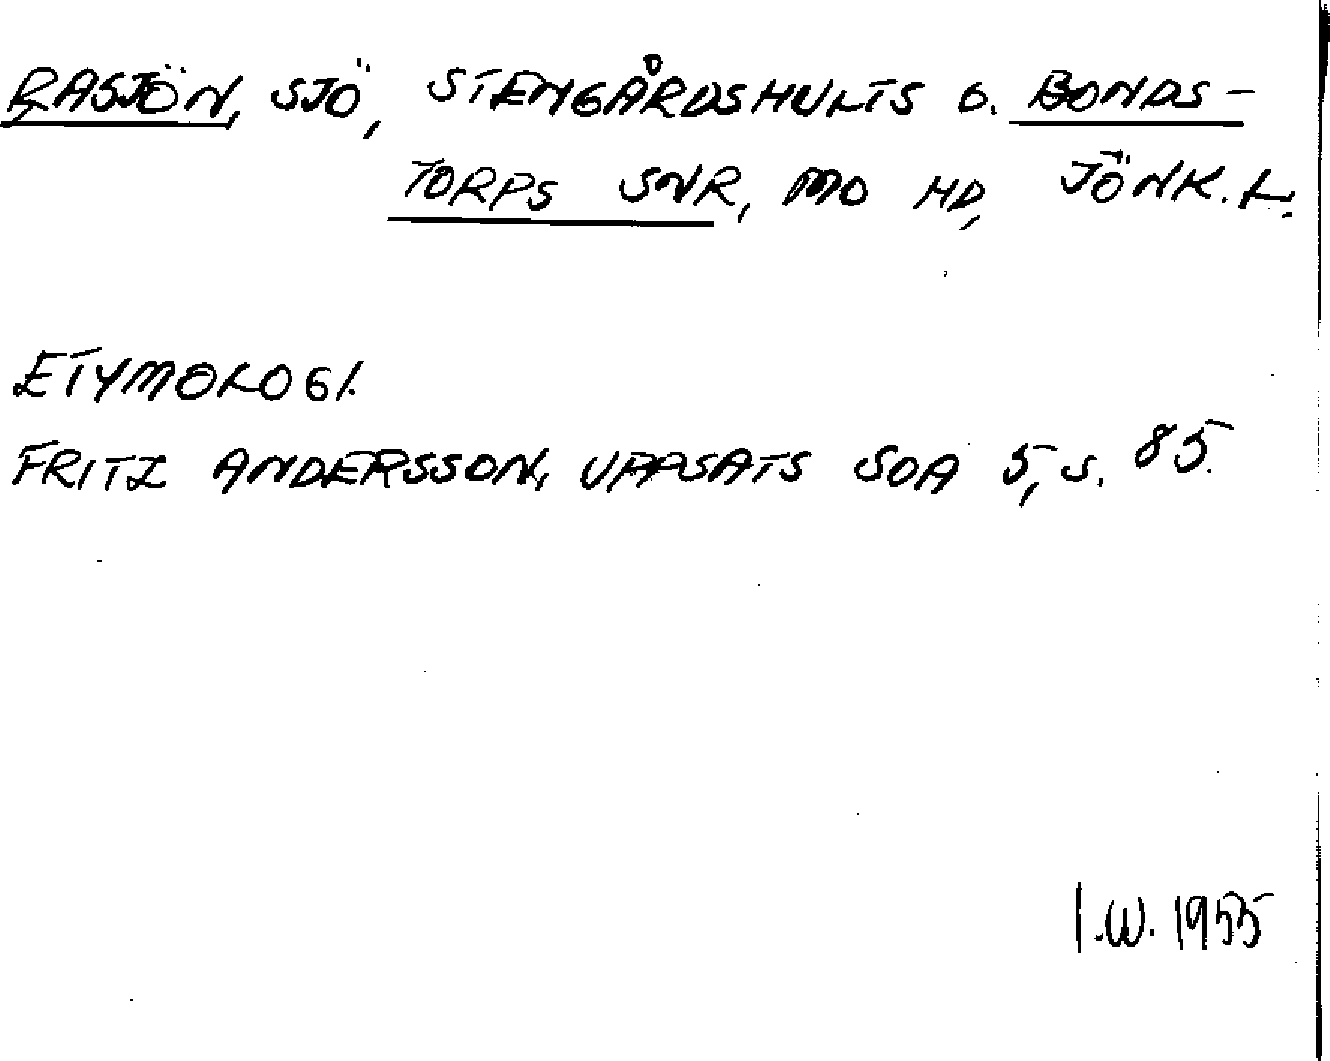 RASJÖN, SJÖ, STENGÅRDSHULTS O. BONDS-
TORPS SNR, MO HD, JÖNK. L.
ETYMOLOGI.
FRITZ ANDERSSON, UPPSATS SOA 5, S. 85.
I.W. 1955